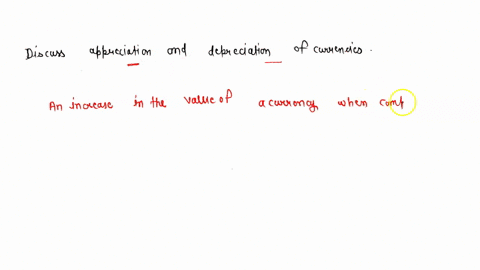 Discuss appreciation and depreciation of currencies.
An increase in the value of a currency when comp